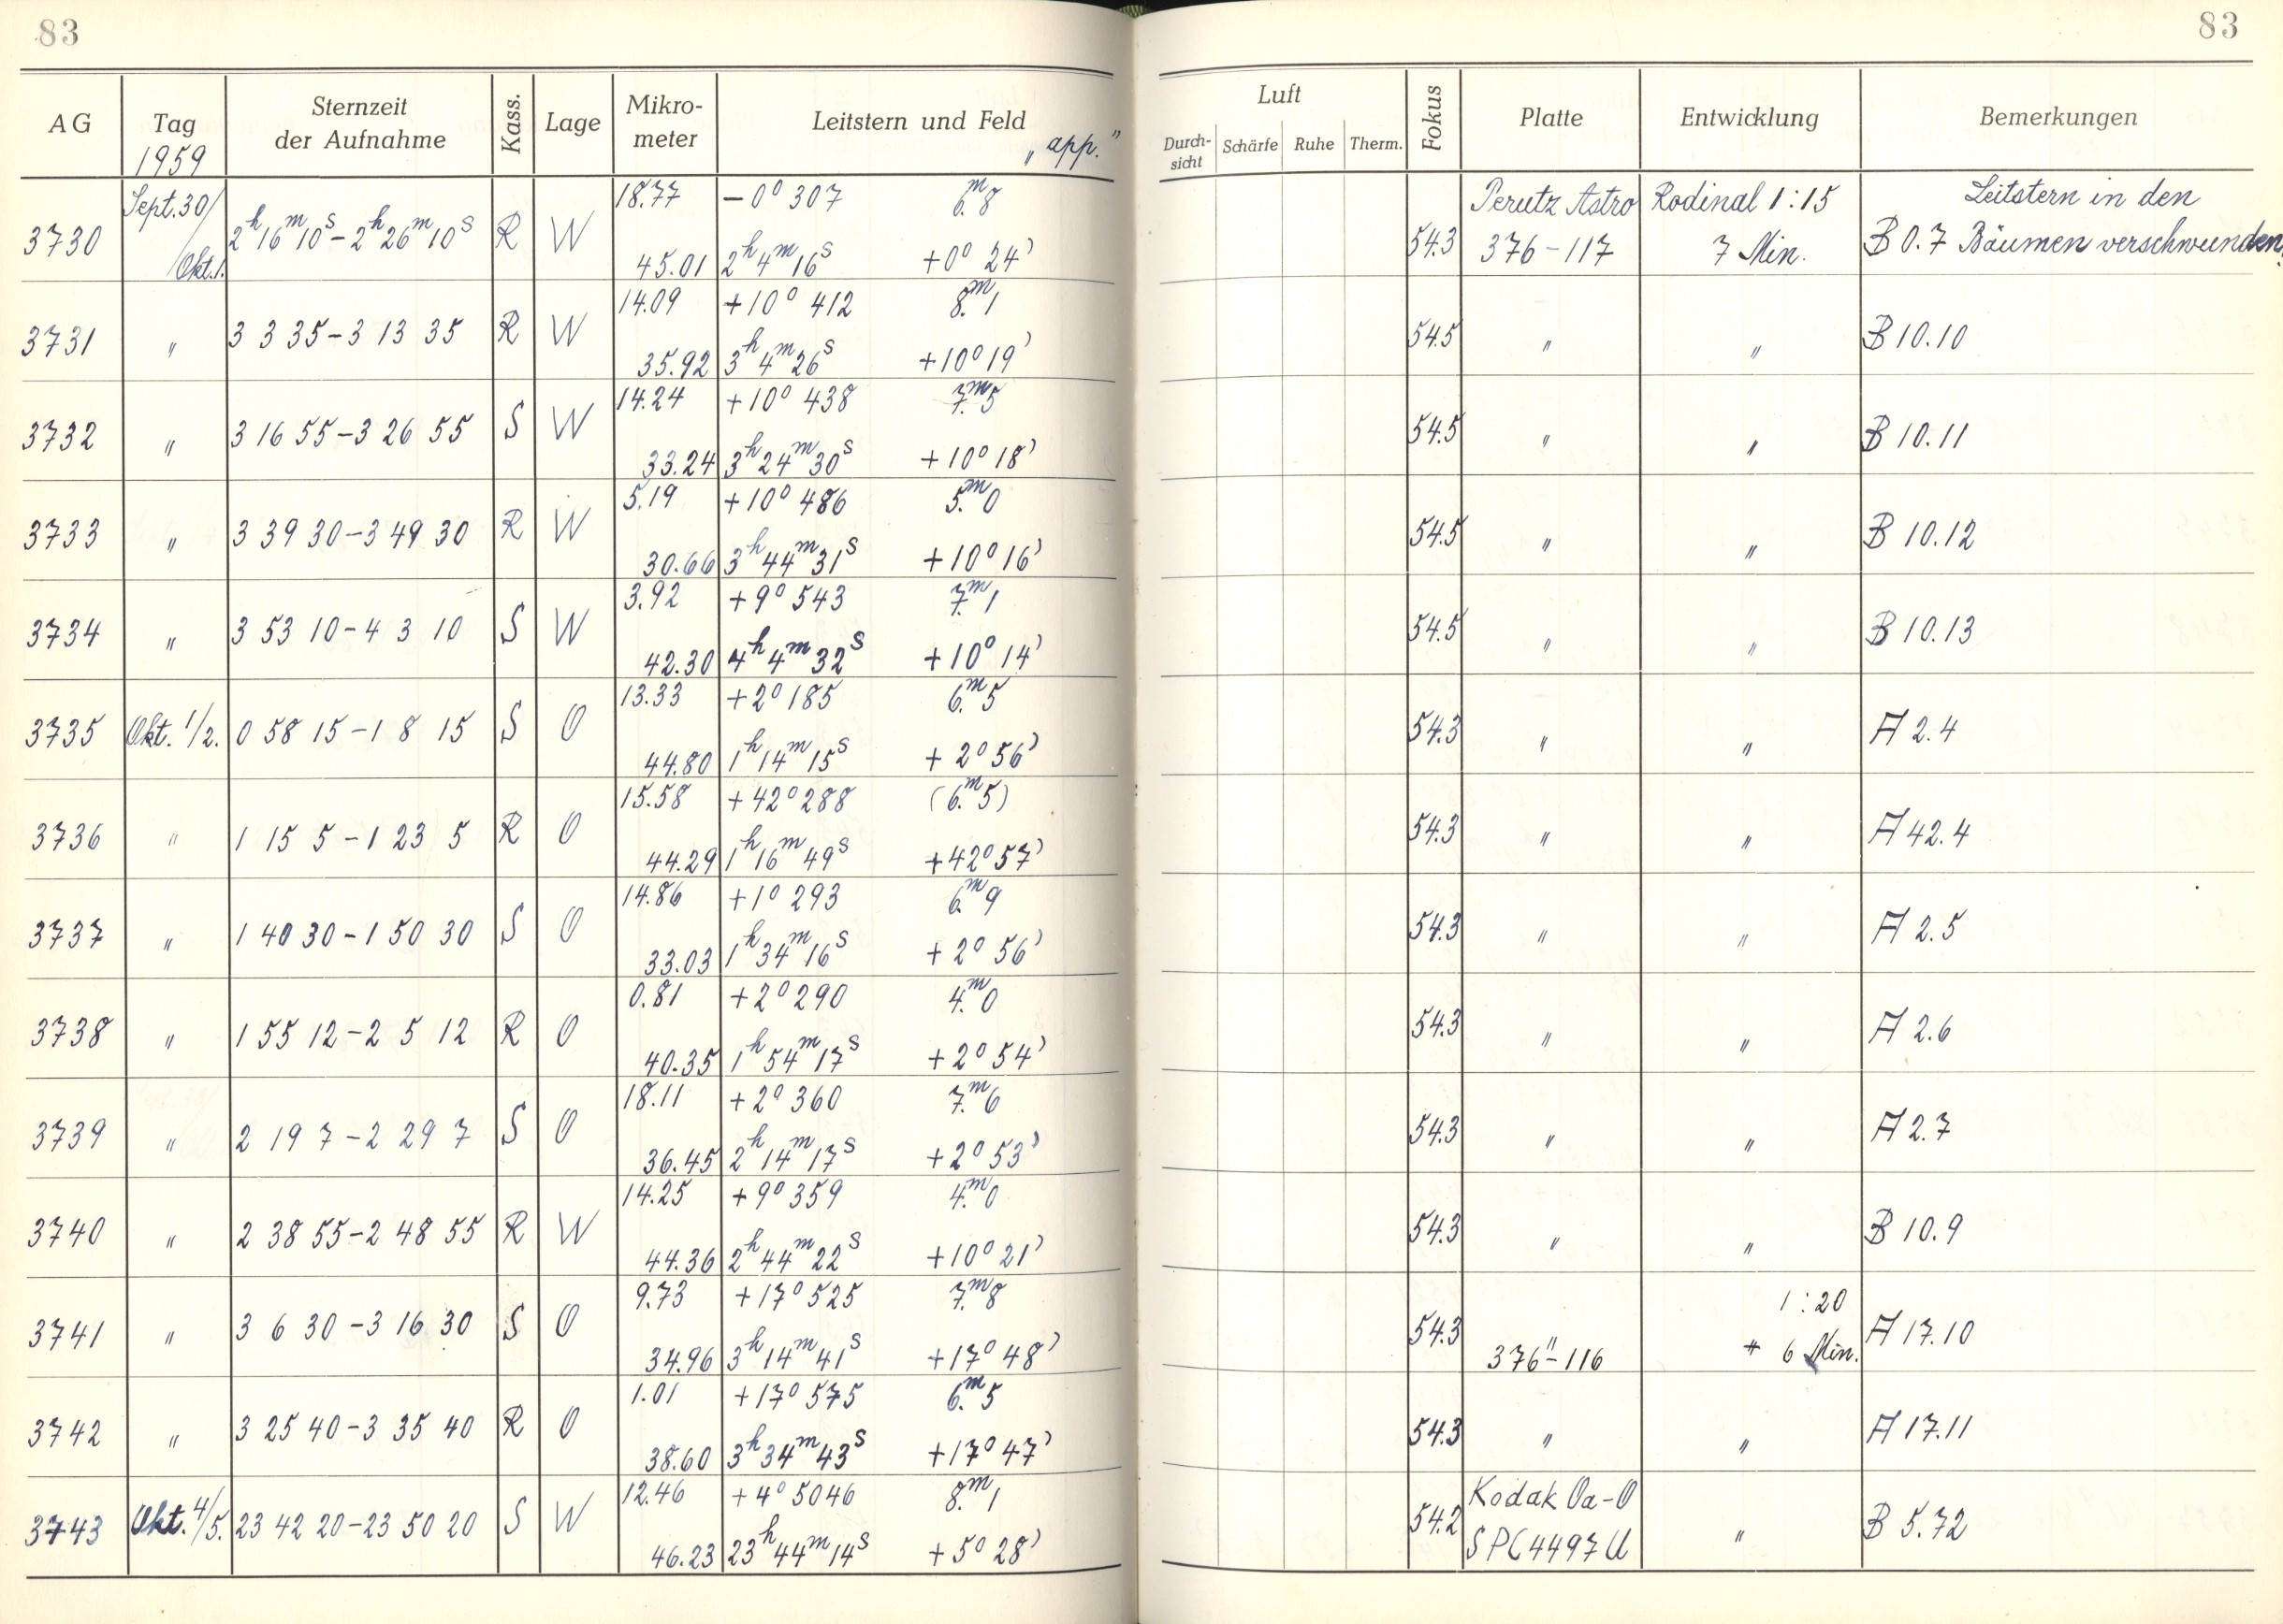 83
83
AG Tag Sternzeit der Aufnahme Kass. Lage Mikro-meter Leitstern und Feld Luft Fokus Platte Entwicklung Bemerkungen
1959 „app.“ Durch-sicht Schärfe Ruhe Therm.
Sept. 30/ 18.77 −0° 307 6.ᵐ8 Perutz Astro Rodinal 1:15 Leitstern in den
3730 2ʰ16ᵐ10ˢ–2ʰ26ᵐ10ˢ R W 54.3 376–117 7 Min. B 0.7 Bäumen verschwunden.
/Okt.1. 45.01 2ʰ4ᵐ16ˢ +0° 24'
14.09 +10° 412 8.ᵐ1
3731 " 3 3 35–3 13 35 R W 54.5 " " B 10.10
35.92 3ʰ4ᵐ26ˢ +10° 19'
14.24 +10° 438 7.ᵐ5
3732 " 3 16 55–3 26 55 S W 54.5 " " B 10.11
33.24 3ʰ24ᵐ30ˢ +10° 18'
5.19 +10° 486 5.ᵐ0
3733 " 3 39 30–3 49 30 R W 54.5 " " B 10.12
30.66 3ʰ44ᵐ31ˢ +10° 16'
3.92 +9° 543 7.ᵐ1
3734 " 3 53 10–4 3 10 S W 54.5 " " B 10.13
42.30 4ʰ4ᵐ32ˢ +10° 14'
13.33 +2° 185 6.ᵐ5
3735 Okt. 1/2. 0 58 15–1 8 15 S O 54.3 " " A 2.4
44.80 1ʰ14ᵐ15ˢ +2° 56'
15.58 +42° 288 (6.ᵐ5)
3736 " 1 15 5–1 23 5 R O 54.3 " " A 42.4
44.29 1ʰ16ᵐ49ˢ +42° 57'
14.86 +1° 293 6.ᵐ9
3737 " 1 40 30–1 50 30 S O 54.3 " " A 2.5
33.03 1ʰ34ᵐ16ˢ +2° 56'
0.81 +2° 290 4.ᵐ0
3738 " 1 55 12–2 5 12 R O 54.3 " " A 2.6
40.35 1ʰ54ᵐ17ˢ +2° 54'
18.11 +2° 360 7.ᵐ6
3739 " 2 19 7–2 29 7 S O 54.3 " " A 2.7
36.45 2ʰ14ᵐ17ˢ +2° 53'
14.25 +9° 359 4.ᵐ0
3740 " 2 38 55–2 48 55 R W 54.3 " " B 10.9
44.36 2ʰ44ᵐ22ˢ +10° 21'
9.73 +17° 525 7.ᵐ8 1:20
3741 " 3 6 30–3 16 30 S O 54.3 " " 6 Min. A 17.10
34.96 3ʰ14ᵐ41ˢ +17° 48' 376–116
1.01 +17° 575 6.ᵐ5
3742 " 3 25 40–3 35 40 R O 54.3 " " A 17.11
38.60 3ʰ34ᵐ43ˢ +17° 47'
12.46 +4° 5046 8.ᵐ1 Kodak Oa-O
3743 Okt. 4/5. 23 42 20–23 50 20 S W 54.2 " B 5.72
46.23 23ʰ44ᵐ14ˢ +5° 28' SPC4497U